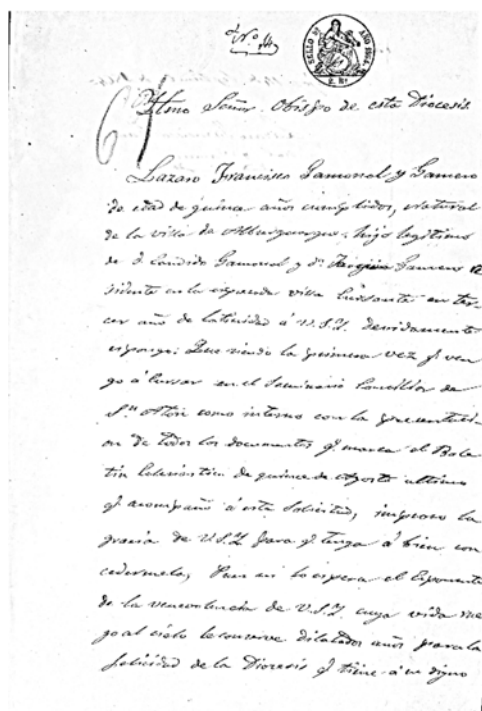 Nº
SELLO 9º AÑO 186
Ylmo Señor Obispo de esta Diocesis
Lazaro Francisco Gamonal y Gamero
de edad de quince años cumplidos, natural
de la villa de Alburquerque, hijo legitimo
de D. Candido Gamonal y Dª Joaquina Gamero re
sidente en la espresada villa Cursante en ter-
cer año de latinidad á V.S.Y. devidamente
espongo: Que siendo la primera vez q ven
go á Cursar en el Seminario Conciliar de
Sn Aton como interno con la presentaci-
on de todos los documentos q marca el Bole
tin Eclesiastico de quince de Agosto ultimo
q acompaño á esta Solicitud, imploro la
gracia de V.S.Y. para q tenga á bien con
cedermela, Pues asi lo espera el Esponente
de la venevolencia de V.S.Y. cuya vida rue
go al cielo le conserve dilatados años para la
felicidad de la Diocesis q tiene á su digno